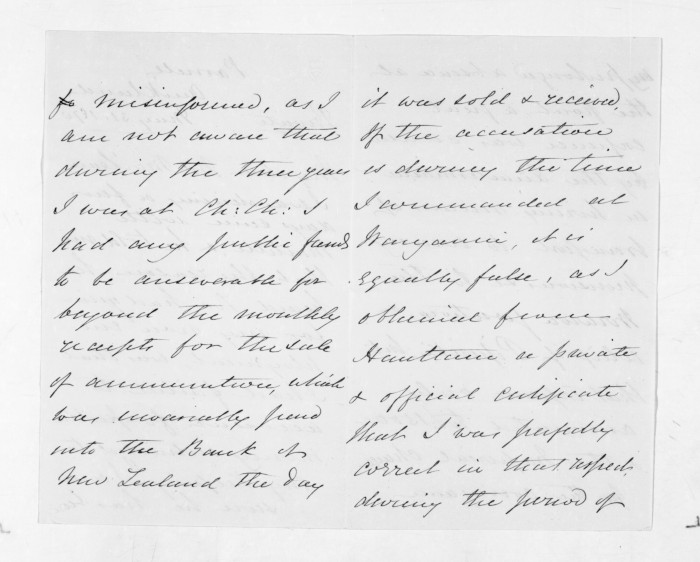 misinformed, as I
am not aware that
during the three years
I was at Ch: Ch: I
had any public funds
to be answerable for
beyond the monthly
receipts for the sale
of ammunition, which
was invariably paid
into the Bank of
New Zealand the day
it was sold & received.
If the accusation
is during the time
I commanded at
Wanganui, it is
equally false, as I
obtained from
Haultain a private
& official certificate
that I was perfectly
correct in that respect,
during the period of